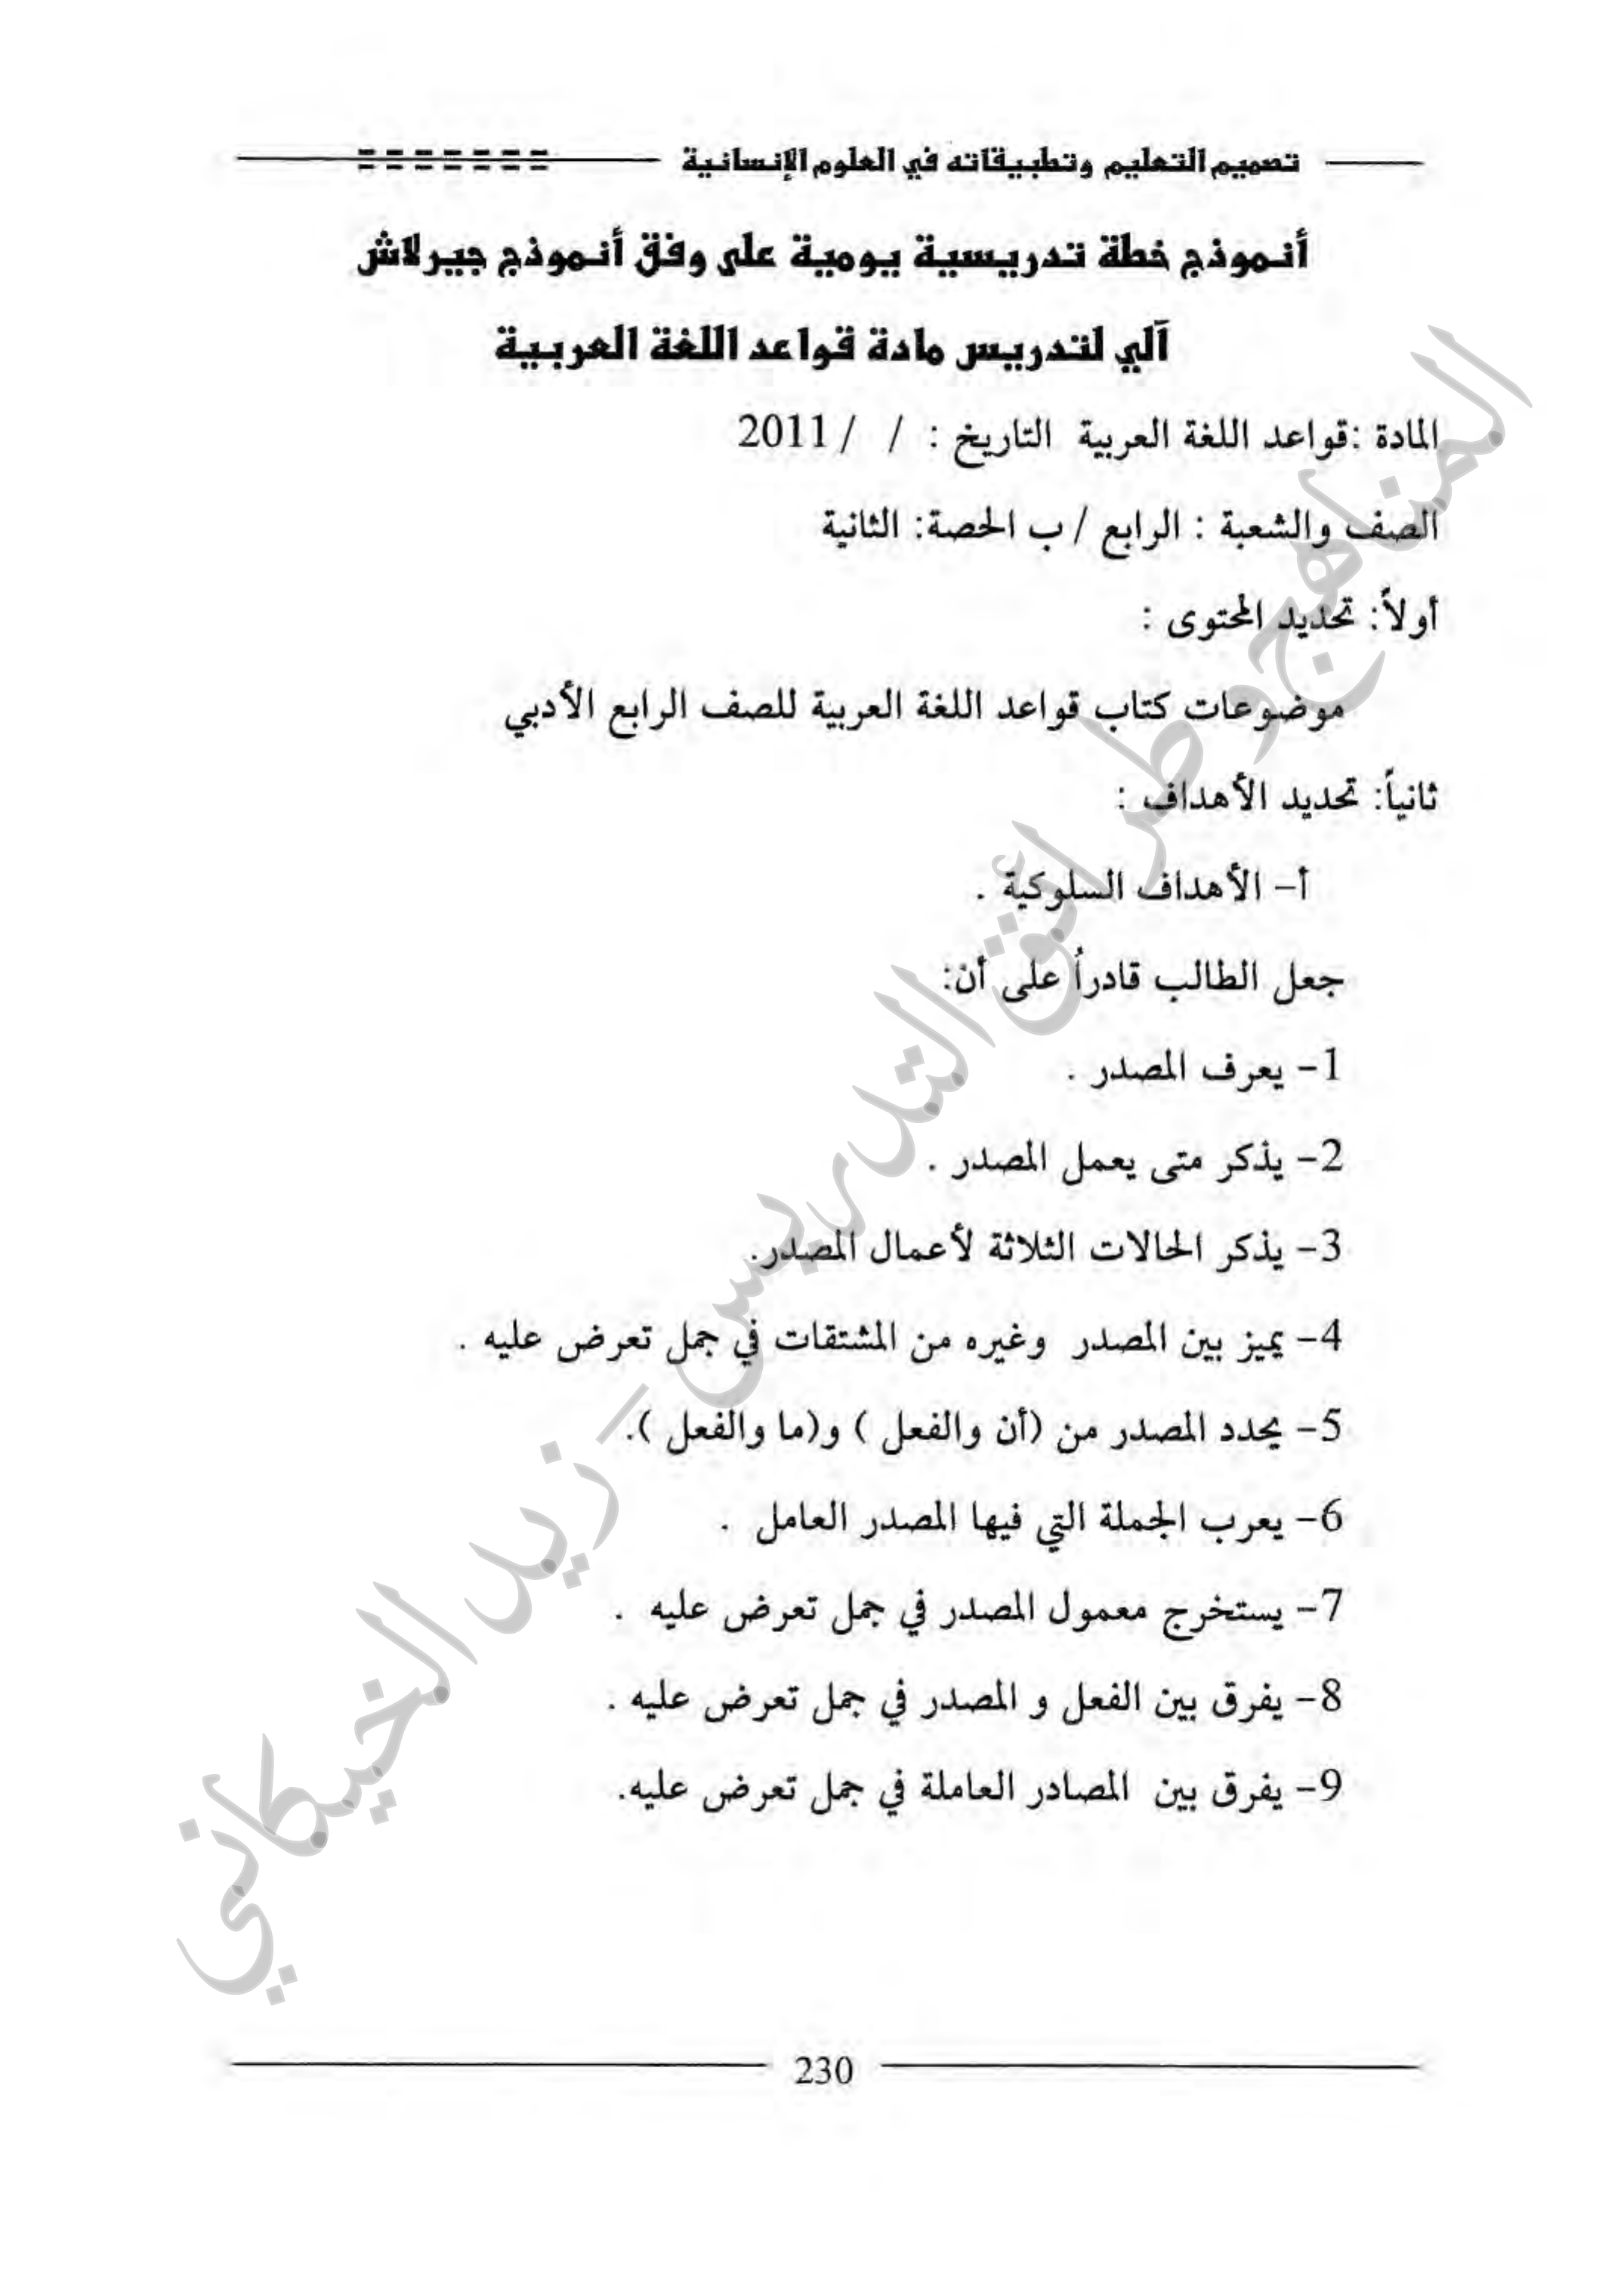 تصميم التعليم وتطبيقاته في العلوم الإنسانية
أنموذج خطة تدريسية يومية على وفق أنموذج جيرلاش
آلي لتدريس مادة قواعد اللغة العربية
المادة :قواعد اللغة العربية التاريخ : / / 2011
الصف والشعبة : الرابع / ب الحصة: الثانية
أولاً: تحديد المحتوى :
موضوعات كتاب قواعد اللغة العربية للصف الرابع الأدبي
ثانياً: تحديد الأهداف :
أ- الأهداف السلوكية .
جعل الطالب قادراً على أن:
1- يعرف المصدر .
2- يذكر متى يعمل المصدر .
3- يذكر الحالات الثلاثة لأعمال المصدر.
4- يميز بين المصدر وغيره من المشتقات في جمل تعرض عليه .
5- يحدد المصدر من (أن والفعل ) و(ما والفعل ).
6- يعرب الجملة التي فيها المصدر العامل .
7- يستخرج معمول المصدر في جمل تعرض عليه .
8- يفرق بين الفعل و المصدر في جمل تعرض عليه .
9- يفرق بين المصادر العاملة في جمل تعرض عليه.
230
المناهج وطرائق التدريس - زيد الخيكاني